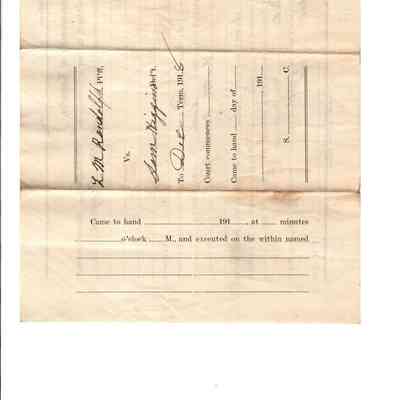 L. M. Randolph Pl'ff,
Vs.
Sam Wiggins Def't.
To Dec Term, 1916
Court commences
Came to hand day of
, 191
S. C.
Came to hand 191 , at minutes
o'clock M., and executed on the within named